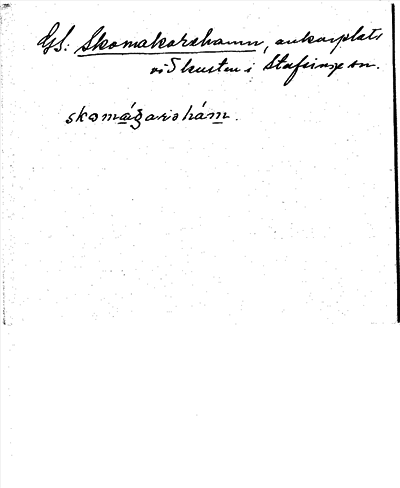 GS: Skomakarehamn, ankarplats
vid kusten i Stafsinge sn.
skomágarəhám.